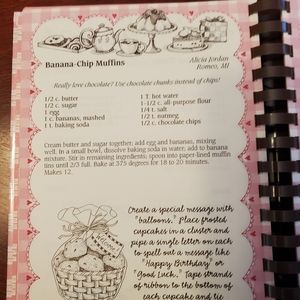 Banana-Chip Muffins
Alicia Jordan
Romeo, MI
Really love chocolate? Use chocolate chunks instead of chips!
1/2 c. butter
1/2 c. sugar
1 egg
1 c. bananas, mashed
1 t. baking soda
1 T. hot water
1-1/2 c. all-purpose flour
1/4 t. salt
1/2 t. nutmeg
1/2 c. chocolate chips
Cream butter and sugar together; add egg and bananas, mixing
well. In a small bowl, dissolve baking soda in water; add to banana
mixture. Stir in remaining ingredients; spoon into paper-lined muffin
tins until 2/3 full. Bake at 375 degrees for 18 to 20 minutes.
Makes 12.
Create a special message with
"balloons." Place frosted
cupcakes in a cluster and
pipe a single letter on each
to spell out a message like
"Happy Birthday" or
"Good Luck." Tape strands
of ribbon to the bottom of
each cupcake and tie